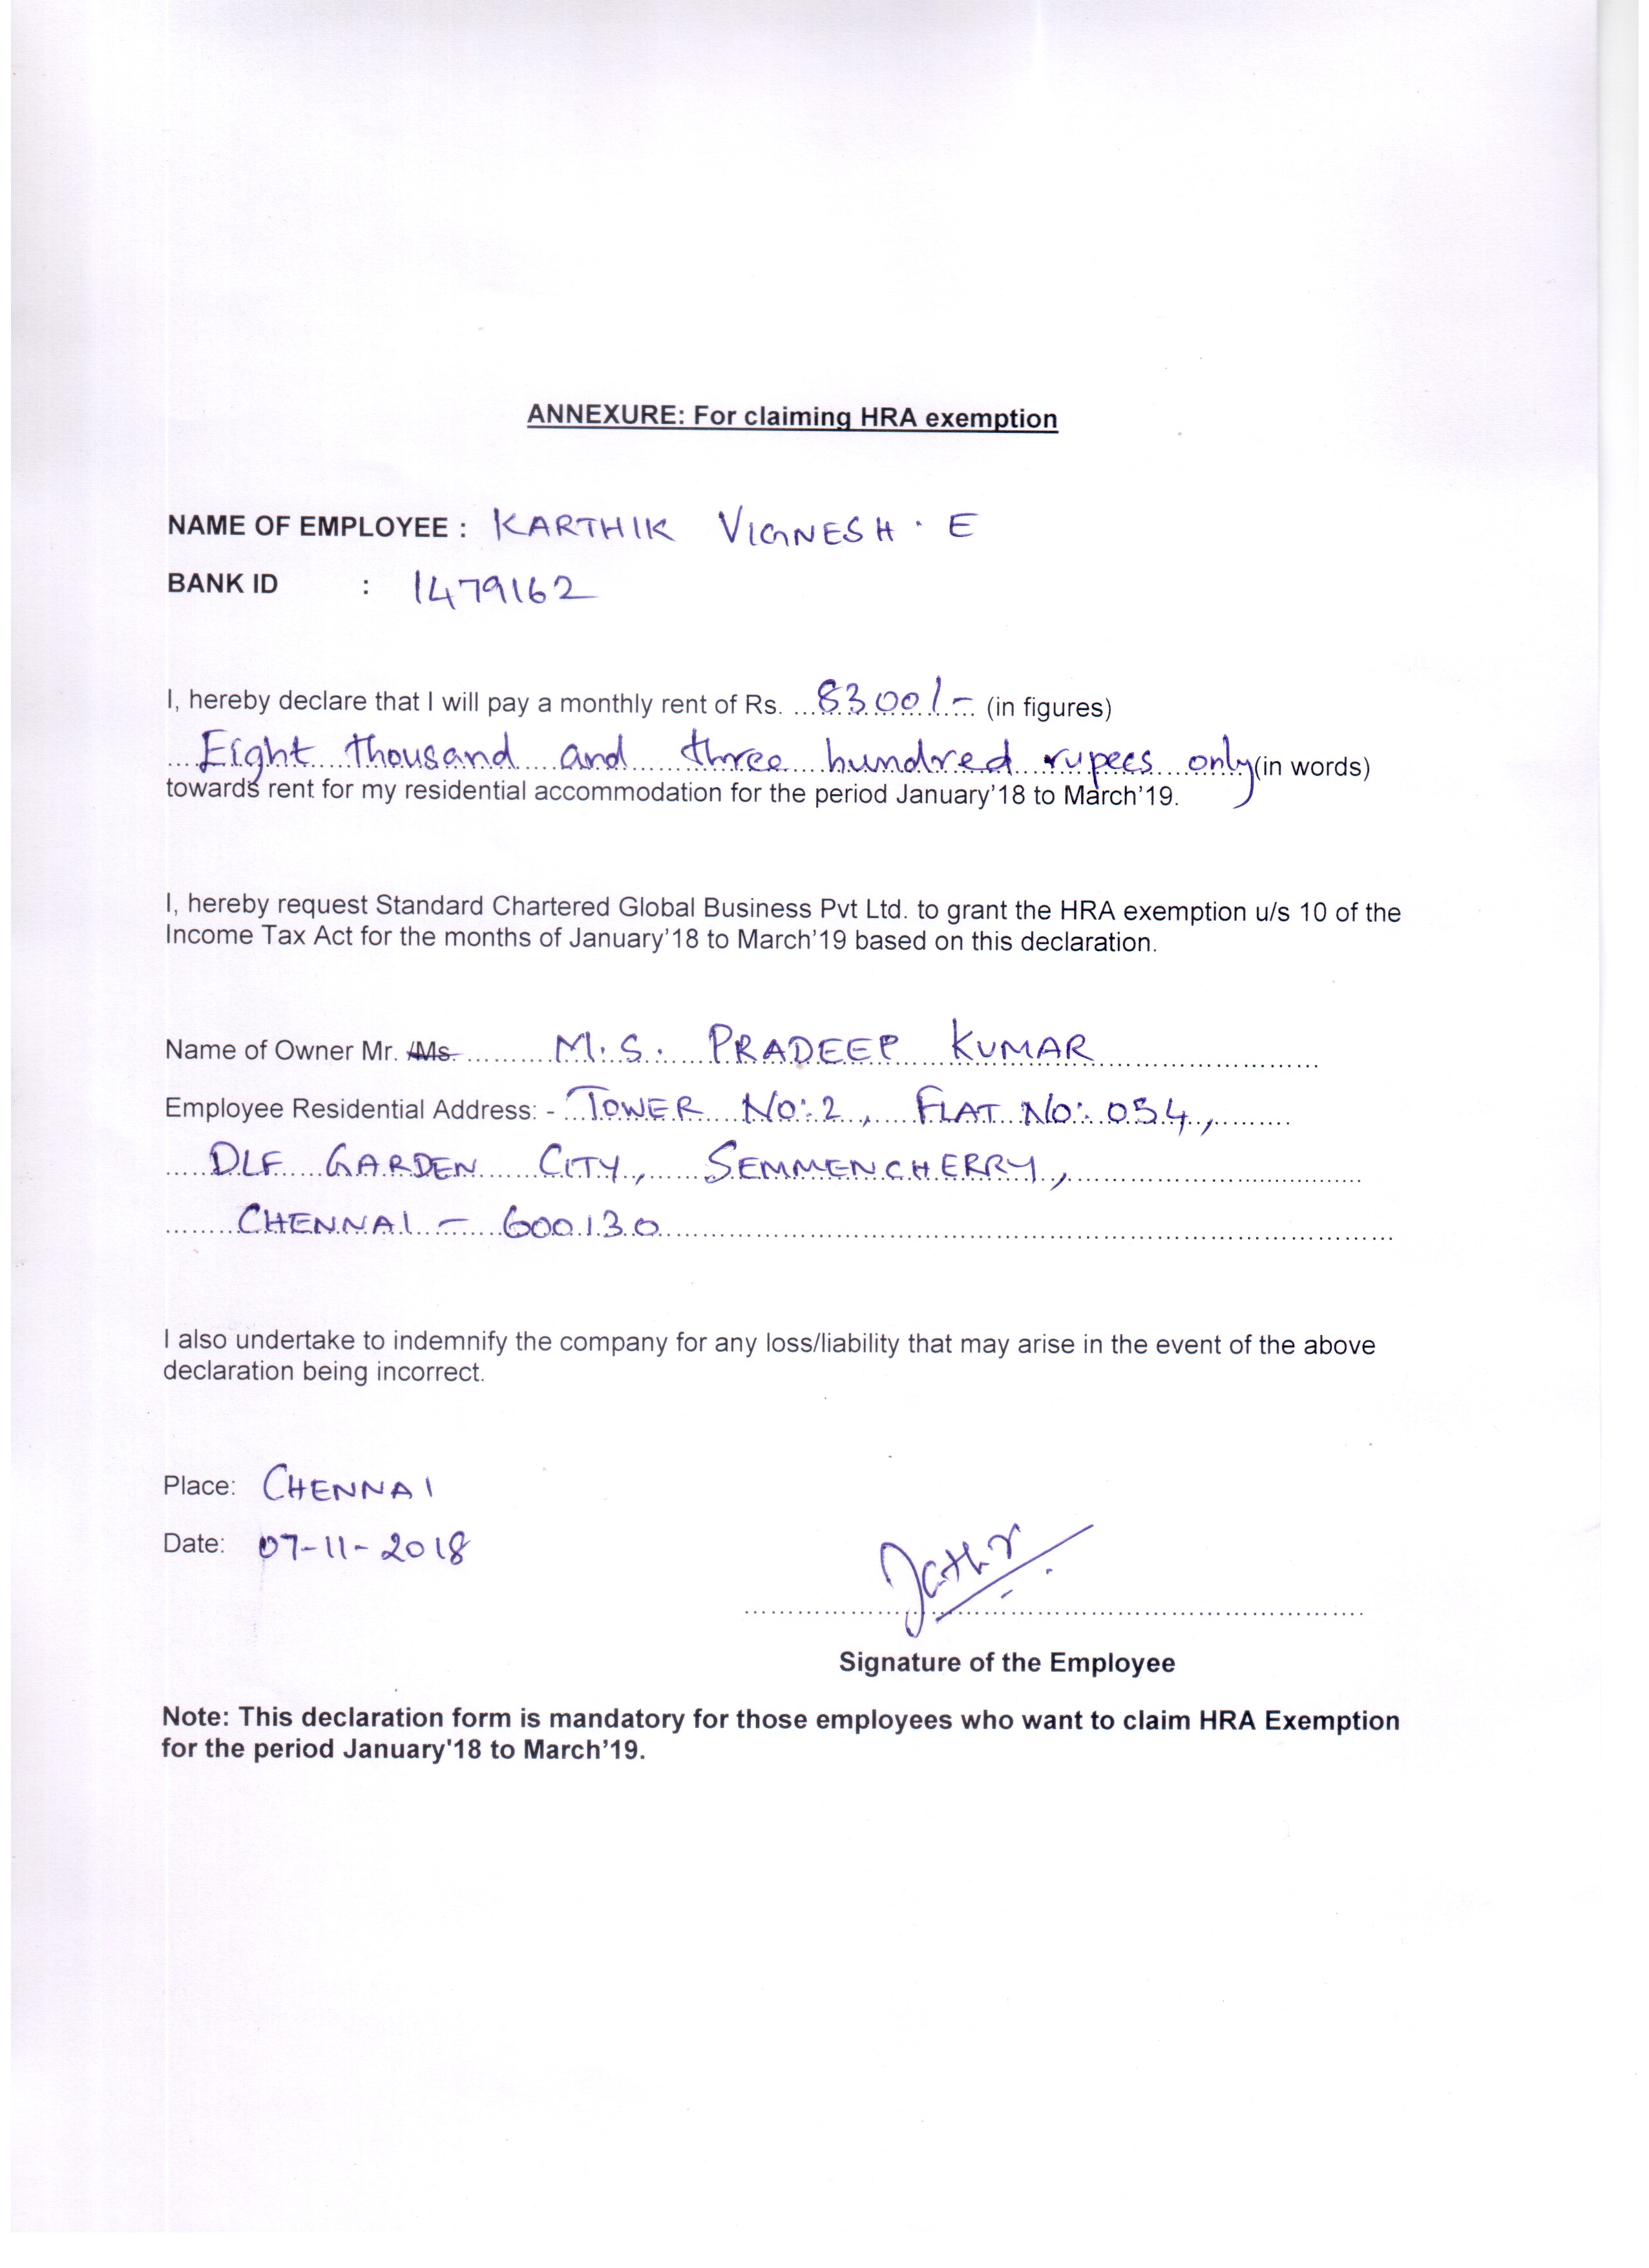 ANNEXURE: For claiming HRA exemption
NAME OF EMPLOYEE : KARTHIK VIGNESH . E
BANK ID : 1479162
I, hereby declare that I will pay a monthly rent of Rs. ...8300/-... (in figures)
....Eight thousand and three hundred rupees only(in words)
towards rent for my residential accommodation for the period January'18 to March'19.
I, hereby request Standard Chartered Global Business Pvt Ltd. to grant the HRA exemption u/s 10 of the
Income Tax Act for the months of January'18 to March'19 based on this declaration.
Name of Owner Mr. /Ms. M.S. PRADEEP KUMAR
Employee Residential Address: - TOWER NO:2, FLAT NO: 054,
DLF GARDEN CITY, SEMMENCHERRY,
CHENNAI - 600130
I also undertake to indemnify the company for any loss/liability that may arise in the event of the above
declaration being incorrect.
Place: CHENNAI
Date: 07-11-2018
Signature of the Employee
Note: This declaration form is mandatory for those employees who want to claim HRA Exemption
for the period January'18 to March'19.